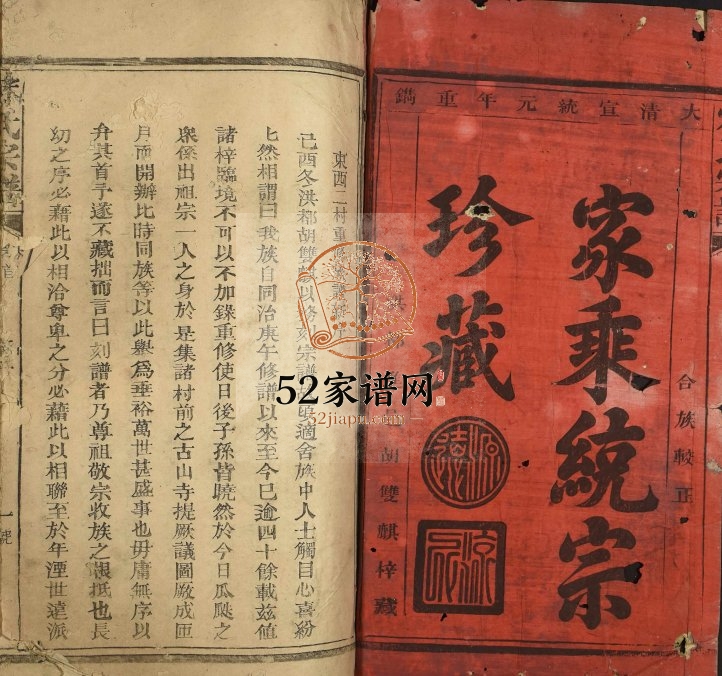 大清宣統元年重鐫
合族較正
家乘統宗
珍藏
胡雙麒梓藏
東西二村重
己酉冬洪都胡雙麒以修刻宗譜適舍族中人士觸目心喜紛
七然相謂曰我族自同治庚午修譜以來至今已逾四十餘載茲値
諸梓臨境不可以不加錄重修使日後子孫皆曉然於今日瓜瓞之
衆係出祖宗一人之身於是集諸村前之古山寺提厥議圖厥成匝
月而開辦比時同族等以此舉爲垂裕萬世甚盛事也毋庸無序以
弁其首予遂不藏拙而言曰刻譜者乃尊祖敬宗收族之根抵也長
幼之序必藉此以相洽尊卑之分必藉此以相聯至於年湮世遠派
氏宗譜
卷首
一號
52家谱网
52jiapu.com